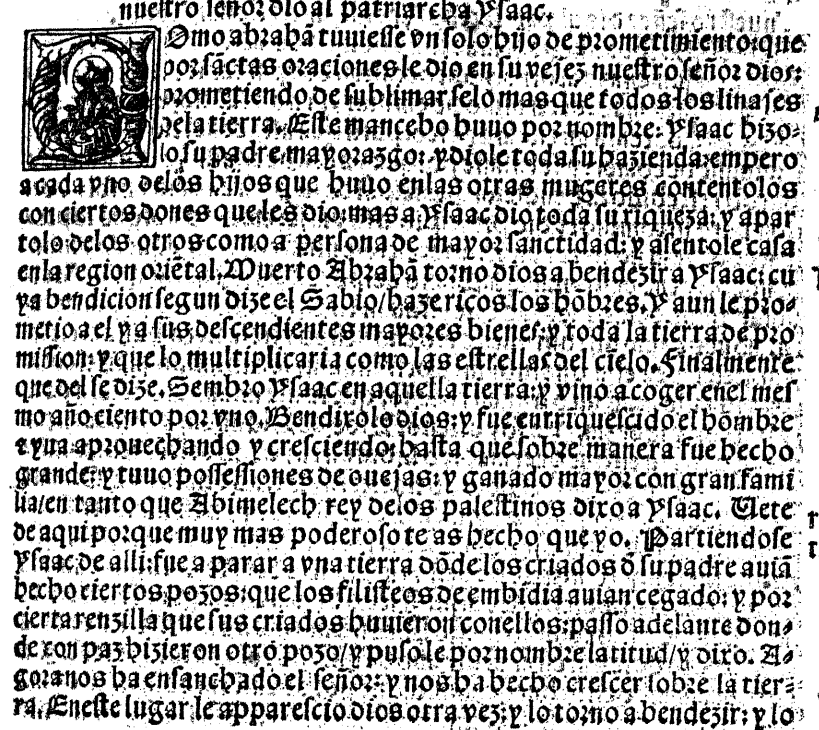 nuestro señor dio al patriarcha Ysaac.
Como abrahã tuuiesse vn solo hijo de prometimiento: que
por sãctas oraciones le dio en su vejez nuestro señor dios:
prometiendo de sublimar selo mas que todos los linajes
dela tierra. Este mancebo huuo por nombre: Ysaac hizo-
lo su padre mayorazgo: y diole toda su hazienda: empero
a cada vno delos hijos que huuo enlas otras mugeres contentolos
con ciertos dones que les dio: mas a Ysaac dio toda su riqueza: y apar
tolo delos otros como a persona de mayor sanctidad: y asentole casa
enla region oriẽtal. Muerto Abrahã torno dios a bendezir a Ysaac: cu
ya bendicion segun dize el Sabio/haze ricos los hõbres. Y aun le pro-
metio a el y a sus descendientes mayores bienes: y toda la tierra de pro
mission: y que lo multiplicaria como las estrellas del cielo. Finalmente
que del se dize. Sembro Ysaac en aquella tierra: y vino a coger enel mes
mo año ciento por vno. Bendixolo dios: y fue enrriquescido el hombre
e yua aprouechando y cresciendo: hasta que sobre manera fue hecho
grande: y tuuo possessiones de ouejas: y ganado mayor con gran fami
lia/en tanto que Abimelech rey delos palestinos dixo a Ysaac. Uete
de aqui porque muy mas poderoso te as hecho que yo. Partiendose
Ysaac de alli: fue a parar a vna tierra dõde los criados d̃ su padre auiã
hecho ciertos pozos: que los filisteos de embidia auian cegado: y por
cierta renzilla que sus criados huuieron conellos: passo adelante don-
de con paz hizieron otro pozo/y puso le por nombre latitud/y dixo. A-
gora nos ha ensanchado el señor: y nos ha hecho crescer sobre la tier-
ra. Eneste lugar le apparescio dios otra vez: y lo torno a bendezir: y lo